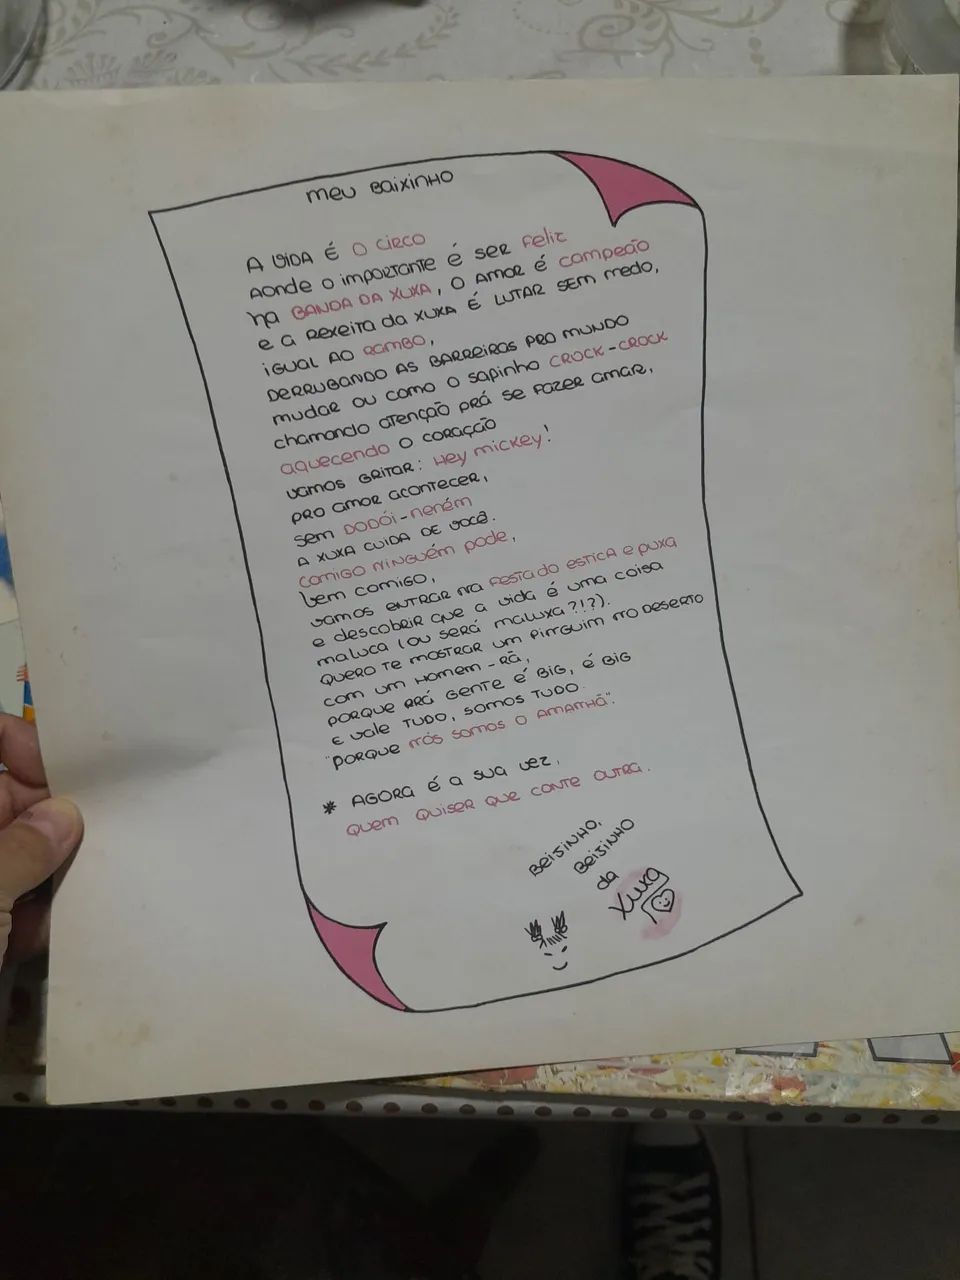 meu Baixinho
A VIDA É O CIRCO
AONDE O IMPORTANTE É SER FELIZ
NA BANDA DA XUXA, O AMOR É CAMPEÃO
E A REXEITA DA XUXA É LUTAR SEM MEDO,
IGUAL AO RAMBO,
DERRUBANDO AS BARREIRAS PRO MUNDO
MUDAR OU COMO O SAPINHO CROCK-CROCK
CHAMANDO ATENÇÃO PRÁ SE FAZER AMAR,
AQUECENDO O CORAÇÃO
VAMOS GRITAR: HEY MICKEY!
PRO AMOR ACONTECER,
SEM DODÓI-NENÉM
A XUXA CUIDA DE VOCÊ.
COMIGO NINGUÉM PODE,
VEM COMIGO,
VAMOS ENTRAR NA FESTA DO ESTICA E PUXA
E DESCOBRIR QUE A VIDA É UMA COISA
MALUCA (OU SERÁ MALUXA?!?).
QUERO TE MOSTRAR UM PINGUIM NO DESERTO
COM UM HOMEM-RÃ,
PORQUE PRÁ GENTE É BIG, É BIG
E VALE TUDO, SOMOS TUDO
"PORQUE NÓS SOMOS O AMANHÃ".
* AGORA É A SUA VEZ.
QUEM QUISER QUE CONTE OUTRA.
BEIJINHO,
BEIJINHO
da
Xuxa